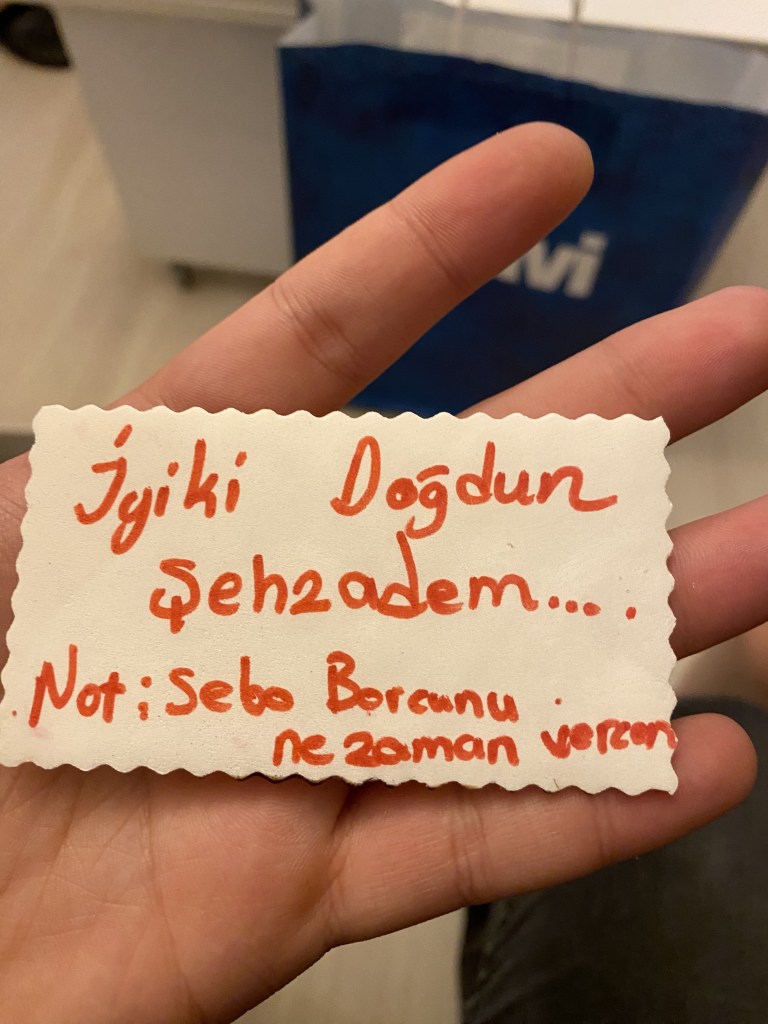 İyiki Doğdun
Şehzadem... .
Not: Sebo Borcunu
ne zaman vercen